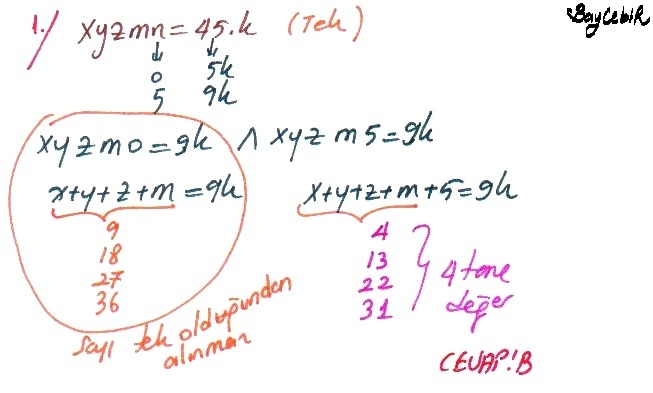 BayCebiR
1.) xyzmn = 45.k (Tek)
↓ ↓
0 5k
5 9k
xyzm0 = 9k ∧ xyzm5 = 9k
x+y+z+m = 9k x+y+z+m+5 = 9k
9 4
18 13
27 22
36 31
4 tane
değer
Sayı tek olduğundan
alınmaz
CEVAP: B